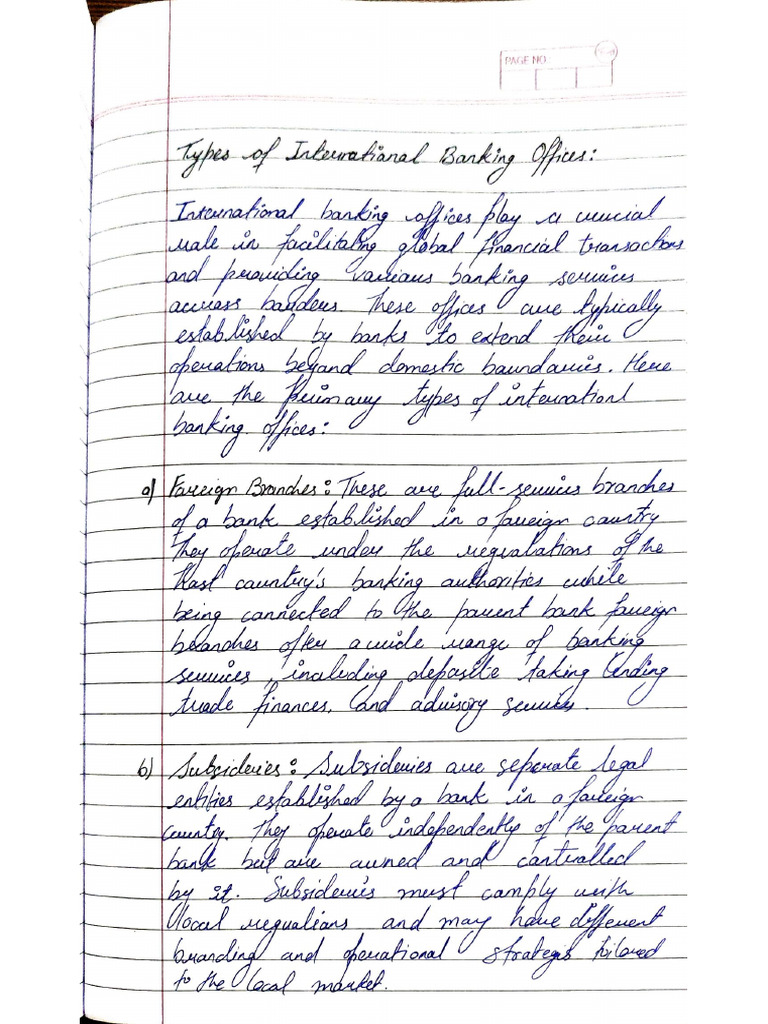 PAGE NO.
Types of International Banking Offices:
International banking offices play a crucial
role in facilitating global financial transactions
and providing various banking services
across borders. These offices are typically
established by banks to extend their
operations beyond domestic boundaries. Here
are the primary types of internationl
banking offices:
a) Foreign Branches: These are full-services branches
of a bank established in a foreign country
They operate under the regualations of the
host country's banking authorities while
being connected to the parent bank foreign
branches offer a wide range of banking
services, including deposite taking lending
trade finances, and advisory services.
b) Subsideries: Subsideries are seperate legal
entities established by a bank in a foreign
country. They operate independently of the parent
bank but are owned and controlled
by it. Subsideries must comply with
local regualians and may have different
branding and operational strategis tailored
to the local market.